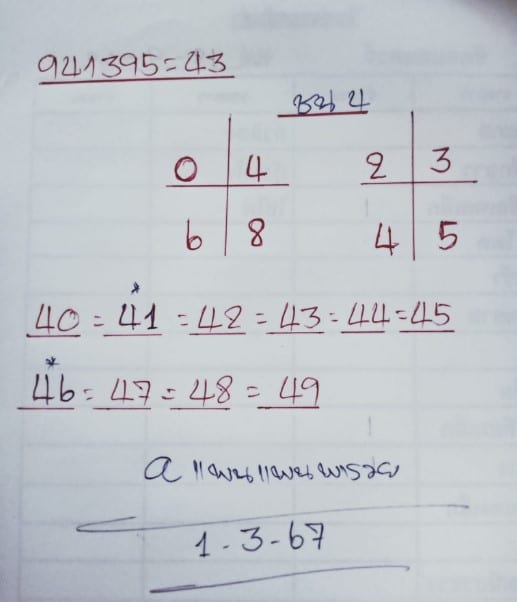 941395=43
ชน 4
0 4 2 3
6 8 4 5
*
40 = 41 = 42 = 43 = 44 = 45
*
46 = 47 = 48 = 49
a
1-3-67